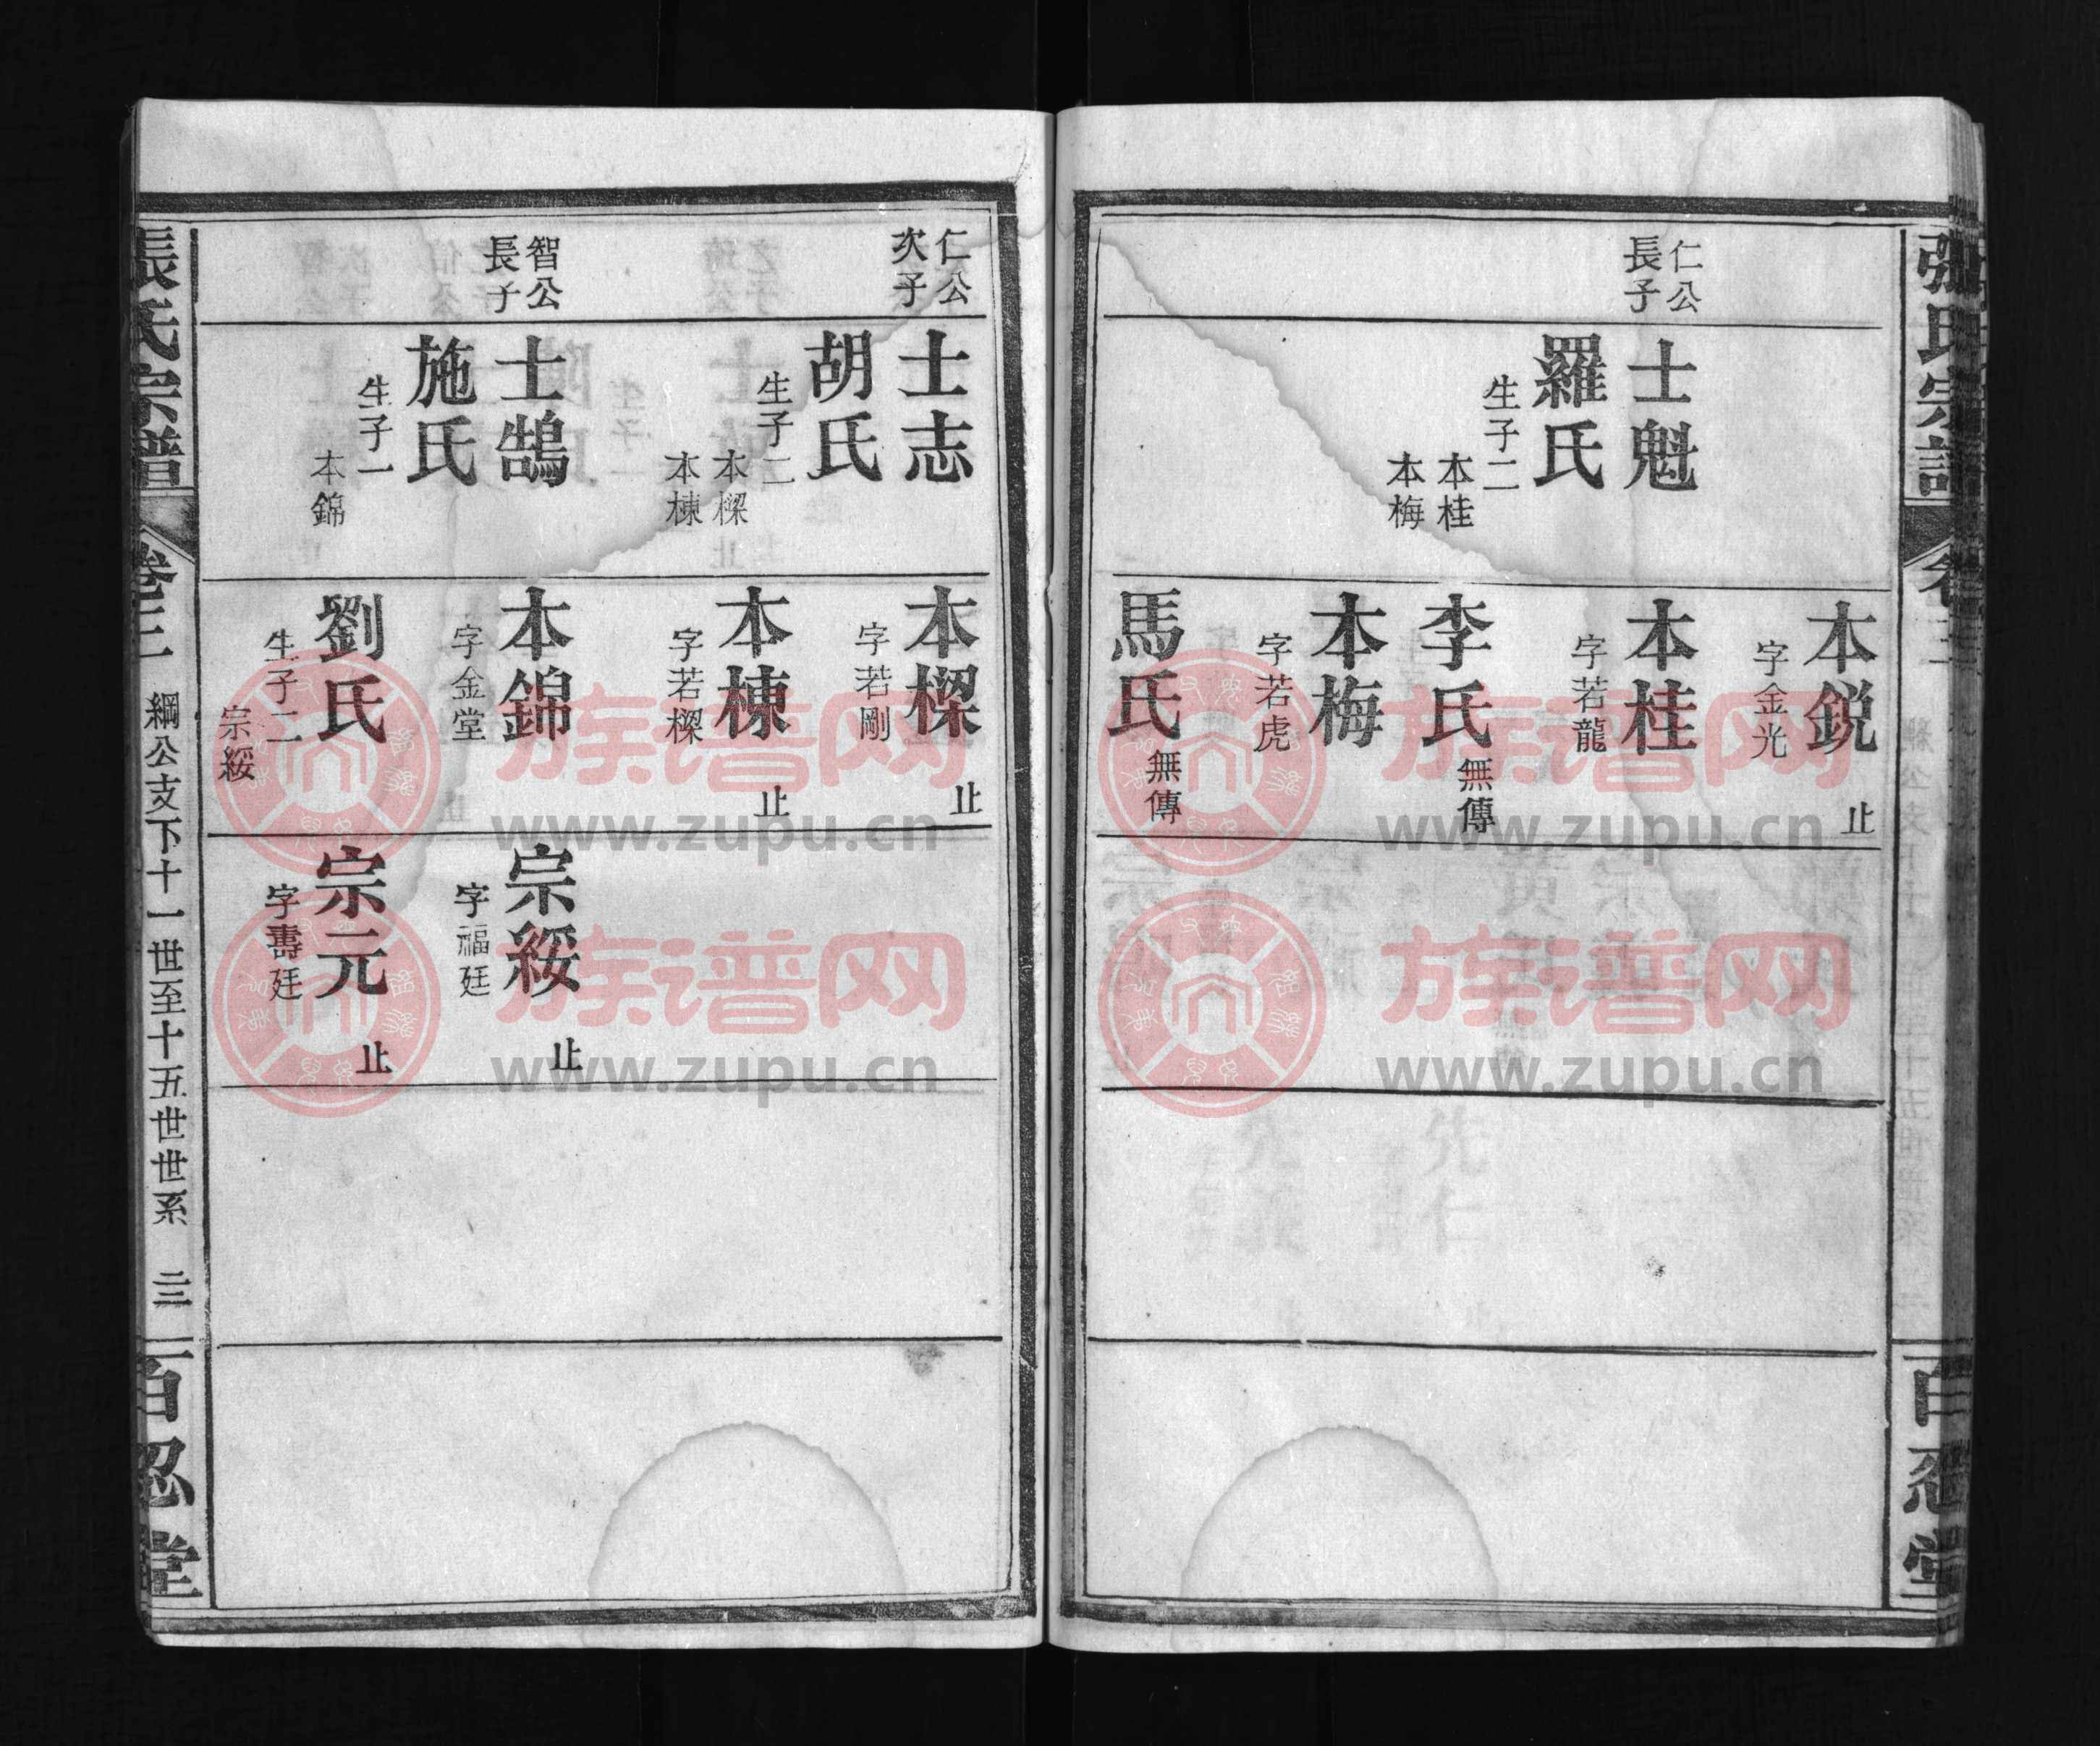 張氏宗譜
百忍堂
仁公
長子
士魁
羅氏
生子二
本桂
本梅
本鋭
字金光
止
本桂
字若龍
李氏
無傳
本梅
字若虎
馬氏
無傳
仁公
次子
智公
長子
士志
胡氏
生子二
本樑
本棟
士鵠
施氏
生子一
本錦
本樑
字若剛
止
本棟
字若樑
止
本錦
字金堂
劉氏
生子二
宗綏
宗綏
字福廷
止
宗元
字壽廷
止
張氏宗譜
卷三
綱公支下十一世至十五世世系
三
百忍堂
族谱网
www.zupu.cn
族谱网
www.zupu.cn
族谱网
www.zupu.cn
族谱网
www.zupu.cn